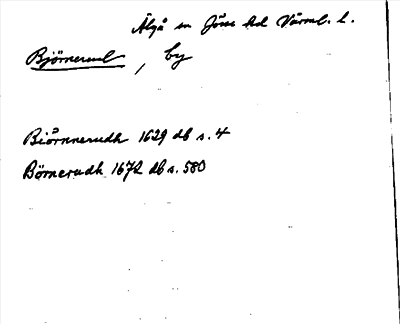 Älgå sn Jösse hd Värml. l.
Björnerud, by
Biörnnerudh 1629 db s. 4
Börnerudh 1672 db s. 580